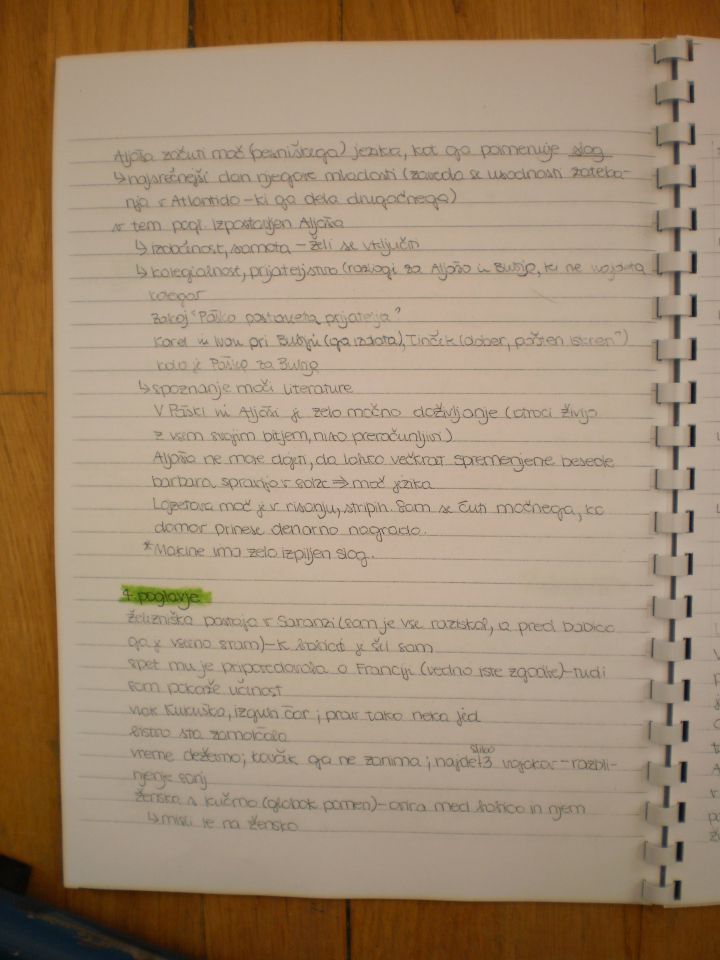 Aljoša začuti moč (pesniškega) jezika, kot ga poimenuje slog
↳ najsrečnejši dan njegove mladosti (zaveda se usodnosti zateka-
nja v Atlantido - ki ga dela drugačnega)
v tem pogl. izpostavljen Aljoša
↳ izobčenost, samota - želi se vključiti
↳ kolegialnost, prijateljstvo (razlogi za Aljošo in ki ne
kolegov
zakaj "Paško postaneta prijatelja"
Karel in Ivan pri (ga izdata), Tinček (dober, pošten iskren")
kdo je Paško za
↳ spoznanje moči literature
V Paški in Aljoši je zelo močno doživljanje (otroci živijo
z vsem svojim bitjem, niso preračunljivi)
Aljoša ne more dojeti, da lahko večkrat spremenjene besede
barbara, spravijo v solze ⇒ moč jezika
Lojzetova moč je v risanju, stripih. Sam se čuti močnega, ko
domov prinese denarno nagrado.
*Makine ima zelo izpiljen slog.
4. poglavje
železniška postaja v Saranzi (sam je vse raziskal, a pred babico
ga je vseeno sram) - k babici je šel sam
spet mu je pripovedovala o Franciji (vedno iste zgodbe) - tudi
sam pokaže učenost
vlak Kukuška, izgubi čar; prav tako neka jed
bistvo sta zamolčala
vreme deževno; kovček ga ne zanima; najde sliko 3 - razbli-
njenje sanj
ženska s kučmo (globok pomen) - ovira med babico in njem
↳ misli le na žensko